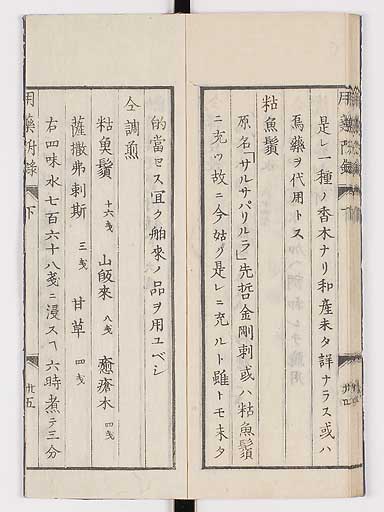 是レ一種ノ香木ナリ和産未タ詳ナラス或ハ
烏藥ヲ代用トス
粘魚鬚
原名「サルサパリルラ」先哲金剛刺或ハ粘魚鬚
ニ充ツ故ニ今姑ク是レニ充ルト雖トモ未タ
的當セス宜ク舶來ノ品ヲ用ユベシ
仝調煎
粘魚鬚 十六戔 山皈來 八戔 癒瘡木 四戔
薩撒弗剌斯 三戔 甘草 四戔
右四味水七百六十八戔ニ浸スヿ六時煮テ三分
用藥附錄 下 廿五